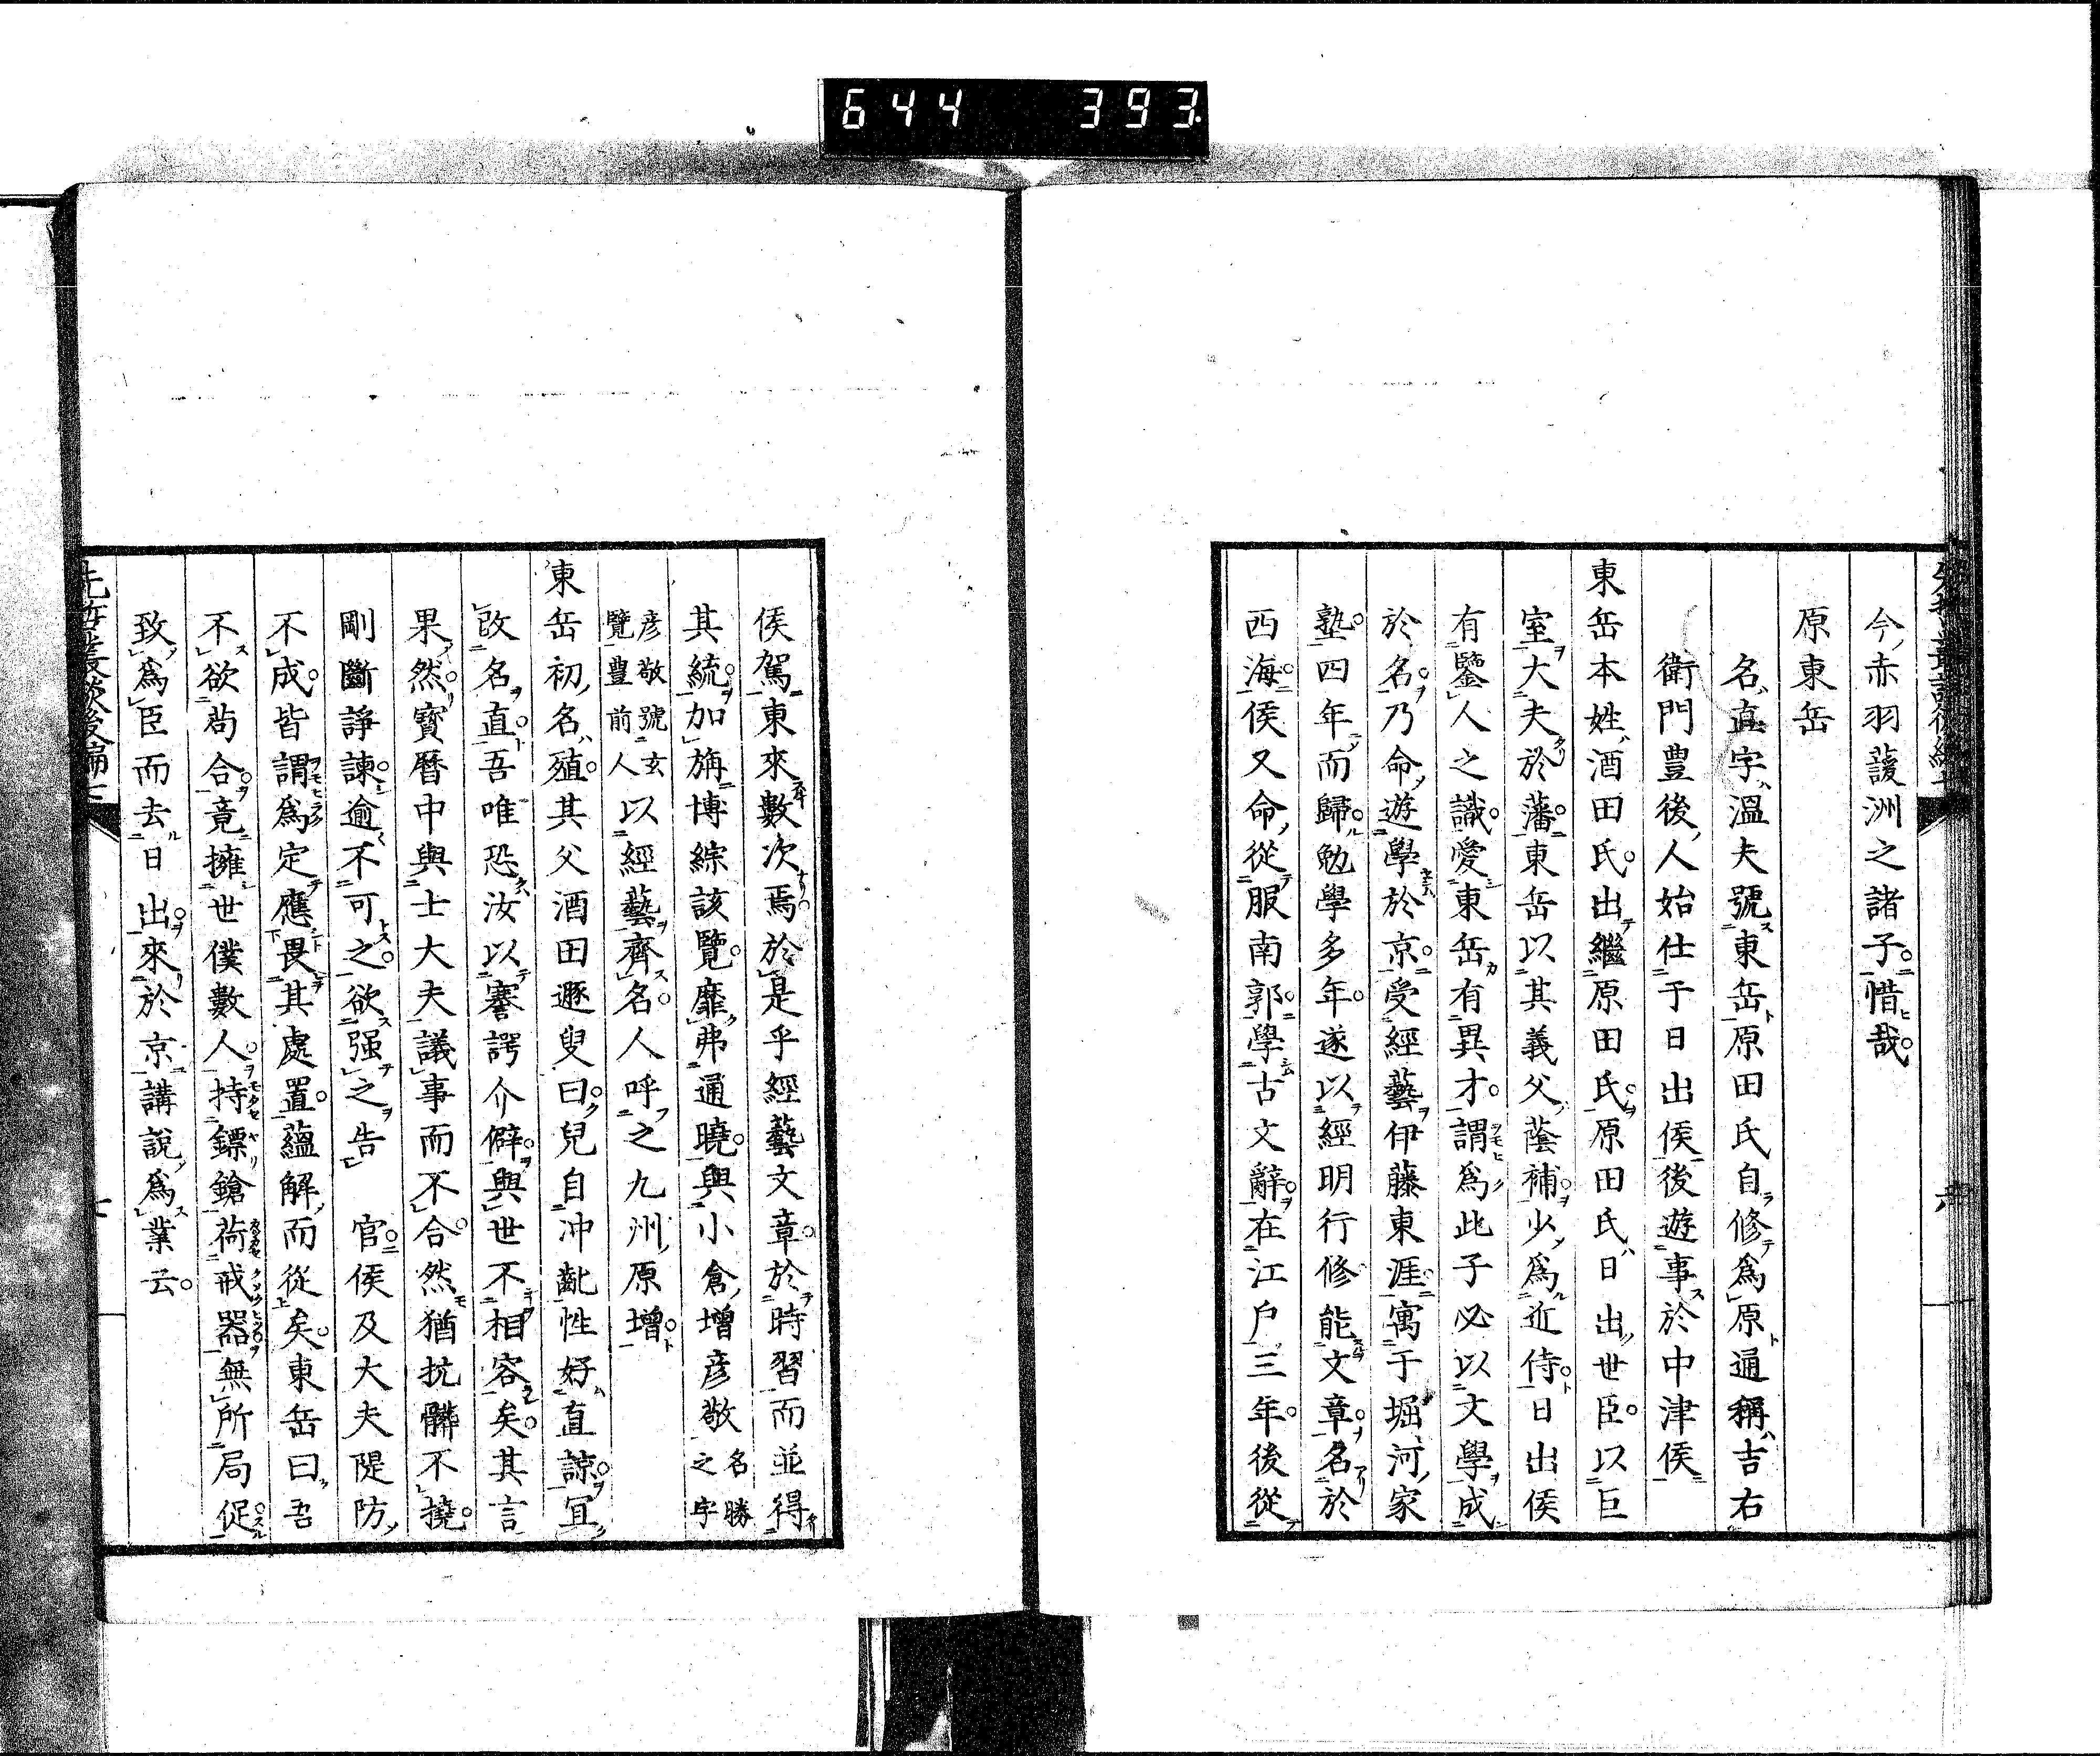 644 393
今赤羽蘐洲之諸子惜哉
原東岳
名直字溫夫號東岳原田氏自修爲原通稱吉右
衛門豊後人始仕于日出侯後遊事於中津侯
東岳本姓酒田氏出繼原田氏原田氏日出世臣以巨
室大夫於藩東岳以其義父蔭補少爲近侍日出侯
有鑒人之識愛東岳有異才謂爲此子必以文學成
於名乃命遊學於京受經藝伊藤東涯寓于堀河家
塾四年而歸勉學多年遂以經明行修能文章名於
西海侯又命從服南郭學古文辭在江戶三年後從
侯駕東來數次焉於是乎經藝文章於時習而並得
其統加旃博綜該覽靡弗通曉與小倉增彦敬名勝之字
彦敬號玄覽豊前人以經藝齊名人呼之九州原增
東岳初名殖其父酒田遯叟曰兒自冲齓性好直諒宜
改名直吾唯恐汝以謇諤介僻與世不相容矣其言
果然寳曆中與士大夫議事而不合然猶抗髒不撓
剛斷諍諫逾不可之欲强之告 官侯及大夫隄防
不成皆謂爲定應畏其處置蘊解而從矣東岳曰吾
不欲茍合竟擁世僕數人持鏢鎗荷戒器無所局促
致爲臣而去日出來於京講說爲業云
先哲叢談後編七
七